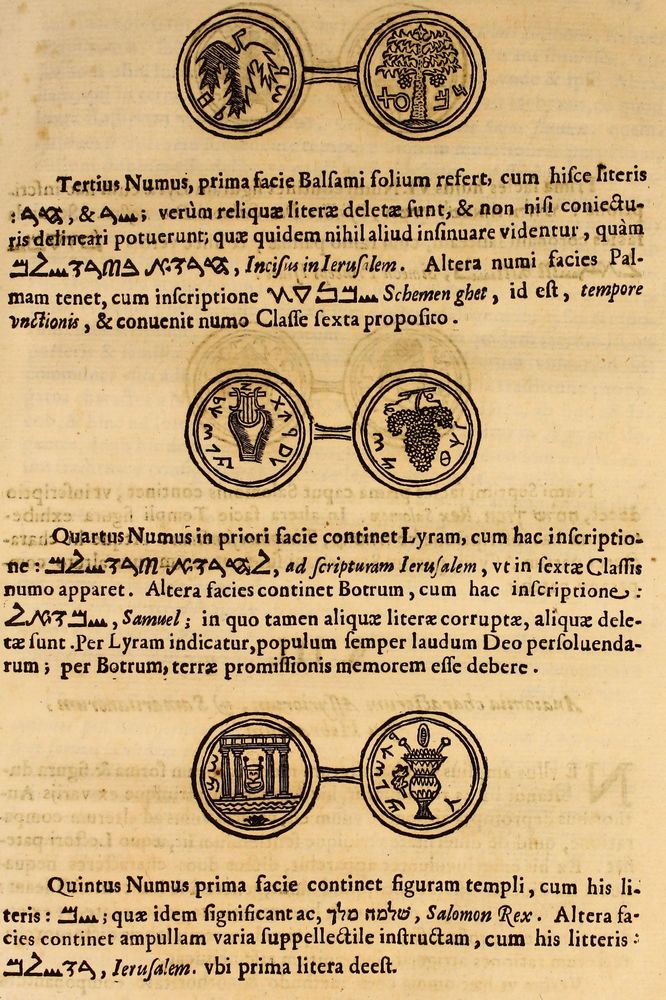 Tertius Numus, prima facie Balſami folium refert, cum hiſce literis
: , & ; verùm reliquæ literæ deletæ ſunt, & non niſi coniectu-
ris delineari potuerunt; quæ quidem nihil aliud inſinuare videntur, quàm
, Inciſus in Ieruſalem. Altera numi facies Pal-
mam tenet, cum inſcriptione Schemen ghet, id eſt, tempore
vnctionis, & conuenit numo Claſſe ſexta propoſito.
Quartus Numus in priori facie continet Lyram, cum hac inſcriptio-
ne: , ad ſcripturam Ieruſalem, vt in ſextæ Claſſis
numo apparet. Altera facies continet Botrum, cum hac inſcriptione:
, Samuel; in quo tamen aliquæ literæ corruptæ, aliquæ dele-
tæ ſunt. Per Lyram indicatur, populum ſemper laudum Deo perſoluenda-
rum; per Botrum, terræ promiſſionis memorem eſſe debere.
Quintus Numus prima facie continet figuram templi, cum his li-
teris: ; quæ idem ſignificant ac, שלמה מלך, Salomon Rex. Altera fa-
cies continet ampullam varia ſuppellectile inſtructam, cum his litteris:
, Ieruſalem. vbi prima litera deeſt.